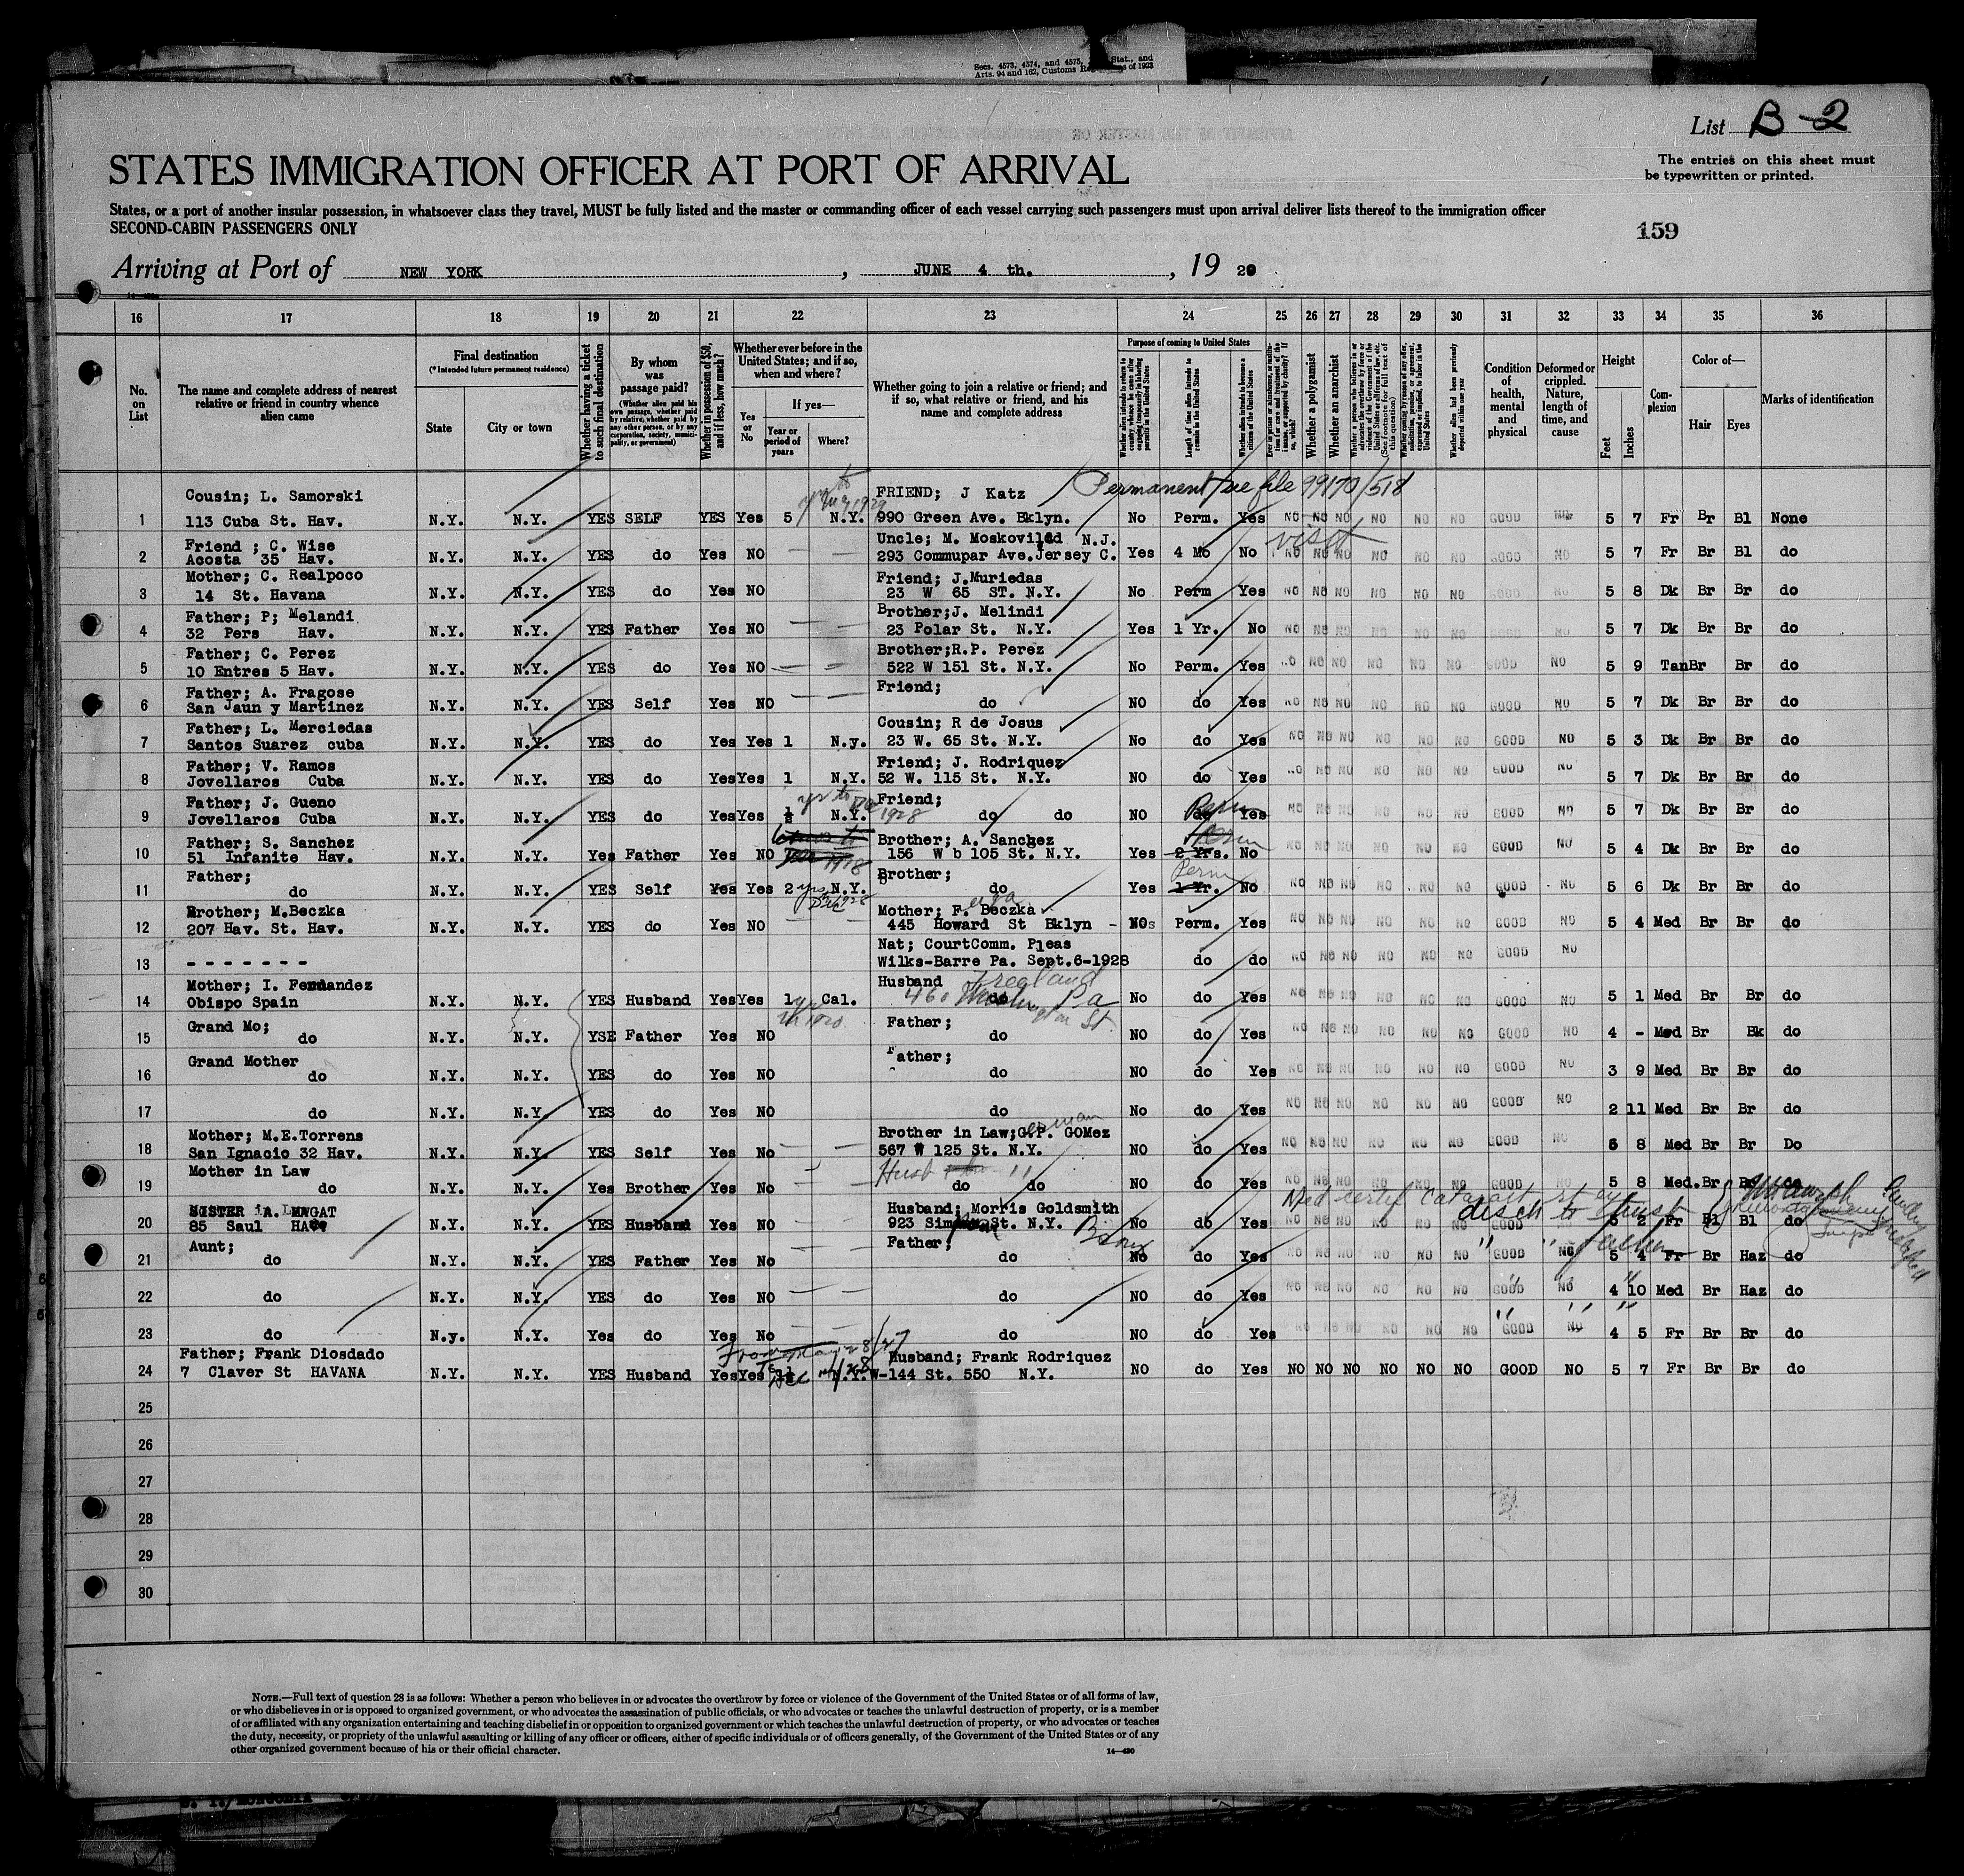 Secs. 4573, 4574, and 4575, Stat., and
Arts. 94 and 162, Customs Reg of 1923
List B-2
The entries on this sheet must
be typewritten or printed.
STATES IMMIGRATION OFFICER AT PORT OF ARRIVAL
States, or a port of another insular possession, in whatsoever class they travel, MUST be fully listed and the master or commanding officer of each vessel carrying such passengers must upon arrival deliver lists thereof to the immigration officer
SECOND-CABIN PASSENGERS ONLY
159
Arriving at Port of NEW YORK, JUNE 4 th., 19 29
16 17 18 19 20 21 22 23 24 25 26 27 28 29 30 31 32 33 34 35 36
No. on List
The name and complete address of nearest relative or friend in country whence alien came
Final destination
(*Intended future permanent residence)
State
City or town
Whether having a ticket to such final destination
By whom was passage paid?
(Whether alien paid his own passage, whether paid by relative, whether paid by any other person, or by any corporation, society, municipality, or government)
Whether in possession of $50, and if less, how much?
Whether ever before in the United States; and if so, when and where?
Yes or No
If yes—
Year or period of years
Where?
Whether going to join a relative or friend; and if so, what relative or friend, and his name and complete address
Purpose of coming to United States
Whether alien intends to return to country whence he came after engaging temporarily in laboring pursuits in the United States
Length of time alien intends to remain in the United States
Whether alien intends to become a citizen of the United States
Whether a polygamist
Whether an anarchist
Whether alien had been previously deported within one year
Condition of health, mental and physical
Deformed or crippled. Nature, length of time, and cause
Height
Feet
Inches
Complexion
Color of—
Hair
Eyes
Marks of identification
Cousin; L. Samorski FRIEND; J Katz Permanent see file 99170/518
1 113 Cuba St. Hav. N.Y. N.Y. YES SELF YES Yes 5 N.Y. 990 Green Ave. Bklyn. No Perm. Yes NO NO NO NO NO NO GOOD NO 5 7 Fr Br Bl None
Friend ; C. Wise Uncle; M. Moskovild N.J. visit
2 Acosta 35 Hav. N.Y. N.Y. YES do Yes NO 293 Commupar Ave.Jersey C. Yes 4 Mo No NO NO NO NO NO NO GOOD NO 5 7 Fr Br Bl do
Mother; C. Realpoco Friend; J.Muriedas
3 14 St. Havana N.Y. N.Y. YES do Yes NO 23 W 65 ST. N.Y. No Perm Yes NO NO NO NO NO NO GOOD NO 5 8 Dk Br Br do
Father; P; Melandi Brother;J. Melindi
4 32 Pers Hav. N.Y. N.Y. YES Father Yes NO 23 Polar St. N.Y. Yes 1 Yr. No NO NO NO NO NO NO GOOD NO 5 7 Dk Br Br do
Father; C. Perez Brother;R.P. Perez
5 10 Entres 5 Hav. N.Y. N.Y. YES do Yes NO 522 W 151 St. N.Y. No Perm. Yes NO NO NO NO NO NO GOOD NO 5 9 Tan Br Br do
Father; A. Fragose Friend;
6 San Jaun y Martinez N.Y. N.Y. YES Self Yes NO do NO do Yes NO NO NO NO NO NO GOOD NO 5 7 Dk Br Br do
Father; L. Merciedas Cousin; R de Josus
7 Santos Suarez cuba N.Y. N.Y. YES do Yes Yes 1 N.y. 23 W. 65 St. N.Y. No do Yes NO NO NO NO NO NO GOOD NO 5 3 Dk Br Br do
Father; V. Ramos Friend; J. Rodriquez
8 Jovellaros Cuba N.Y. N.Y. YES do Yes Yes 1 N.Y. 52 W. 115 St. N.Y. NO do Yes NO NO NO NO NO NO GOOD NO 5 7 Dk Br Br do
Father; J. Gueno Friend;
9 Jovellaros Cuba N.Y. N.Y. YES do Yes Yes N.Y. 1928 do do NO Perm Yes NO NO NO NO NO NO GOOD NO 5 7 Dk Br Br do
Father; S. Sanchez Brother; A. Sanchez Perm
10 51 Infanite Hav. N.Y. N.Y. Yes Father Yes NO 156 W b 105 St. N.Y. Yes 2 Yrs. No NO NO NO NO NO NO GOOD NO 5 4 Dk Br Br do
Father; Brother; Perm
11 do N.Y. N.Y. YES Self Yes Yes 2 yrs N.Y. do Yes 1 Yr. No NO NO NO NO NO NO GOOD NO 5 6 Dk Br Br do
Brother; M.Beczka Mother; F. Beczka
12 207 Hav. St. Hav. N.Y. N.Y. YES do Yes NO 445 Howard St Bklyn - NO Perm. Yes NO NO NO NO NO NO GOOD NO 5 4 Med Br Br do
Nat; CourtComm. Pleas
13 - - - - - - - Wilks-Barre Pa. Sept.6-1928 do do NO NO NO NO NO NO GOOD NO
Mother; I. Fernandez Husband Freeland
14 Obispo Spain N.Y. N.Y. YES Husband Yes Yes 1 Cal. 460 Washington St Pa No do Yes NO NO NO NO NO NO GOOD NO 5 1 Med Br Br do
Grand Mo; Father;
15 do N.Y. N.Y. YSE Father Yes NO do NO do Yes NO NO NO NO NO NO GOOD NO 4 - Med Br Bk do
Grand Mother Father;
16 do N.Y. N.Y. YES do Yes NO do NO do Yes NO NO NO NO NO NO GOOD NO 3 9 Med Br Br do
17 do N.Y. N.Y. YES do Yes NO do No do Yes NO NO NO NO NO NO GOOD NO 2 11 Med Br Br do
Mother; M.E.Torrens Brother in Law;G.P. GOMez
18 San Ignacio 32 Hav. N.Y. N.Y. YES Self Yes No 567 W 125 St. N.Y. NO do Yes NO NO NO NO NO NO GOOD NO 5 8 Med Br Br Do
Mother in Law Husb
19 do N.Y. N.Y. Yes Brother Yes NO do do NO do Yes NO NO NO NO NO NO GOOD NO 5 8 Med. Br Br do
SISTER A. MAGAT Husband; Morris Goldsmith Med certif cataract rt eye disch to husb
20 85 Saul HAV N.Y. N.Y. YES Husband Yes NO 923 St. N.Y. Bronx No do Yes NO NO NO NO NO NO GOOD NO 5 2 Fr Bl Bl do
Aunt; Father; " " father
21 do N.Y. N.Y. YES Father Yes NO do NO do Yes NO NO NO NO NO NO GOOD NO 5 4 Fr Br Haz do
22 do N.Y. N.Y. YES do Yes NO do NO do Yes NO NO NO NO NO NO GOOD NO 4 10 Med Br Haz do
23 do N.y. N.Y. Yes do Yes No do NO do Yes NO NO NO NO NO NO GOOD NO 4 5 Fr Br Br do
Father; Frank Diosdado Husband; Frank Rodriquez
24 7 Claver St HAVANA N.Y. N.Y. YES Husband Yes Yes N.Y. W-144 St. 550 N.Y. NO do Yes NO NO NO NO NO NO GOOD NO 5 7 Fr Br Br do
25
26
27
28
29
30
NOTE.—Full text of question 28 is as follows: Whether a person who believes in or advocates the overthrow by force or violence of the Government of the United States or of all forms of law,
or who disbelieves in or is opposed to organized government, or who advocates the assassination of public officials, or who advocates or teaches the unlawful destruction of property, or is a member
of or affiliated with any organization entertaining and teaching disbelief in or opposition to organized government or which teaches the unlawful destruction of property, or who advocates or teaches
the duty, necessity, or propriety of the unlawful assaulting or killing of any officer or officers, either of specific individuals or of officers generally, of the Government of the United States or of any
other organized government because of his or their official character.
14—430